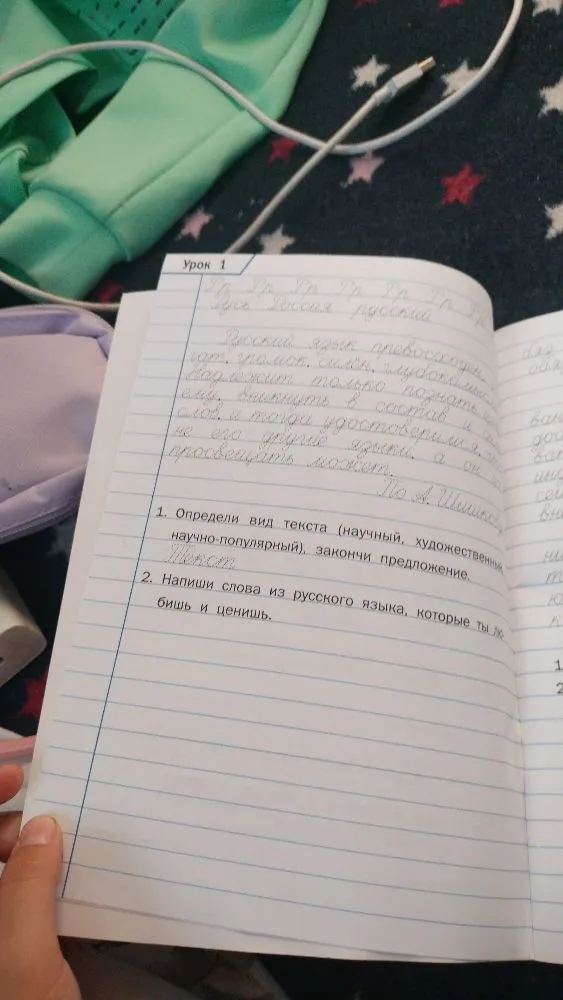 Урок 1
Гр Гр Гр Гр Гр Гр Гр
Русь Россия русский
Русский язык превосходен,
гат, громок, силён, глубокомыс
Надлежит только познать
ему, вникнуть в состав и
слов, и тогда удостоверился я,
не его другие языки, а он
просвещать может.
По А. Шишков
1. Определи вид текста (научный, художественный
научно-популярный), закончи предложение.
Текст
2. Напиши слова из русского языка, которые ты лю-
бишь и ценишь.
ван
дос
ват
сем
1
2